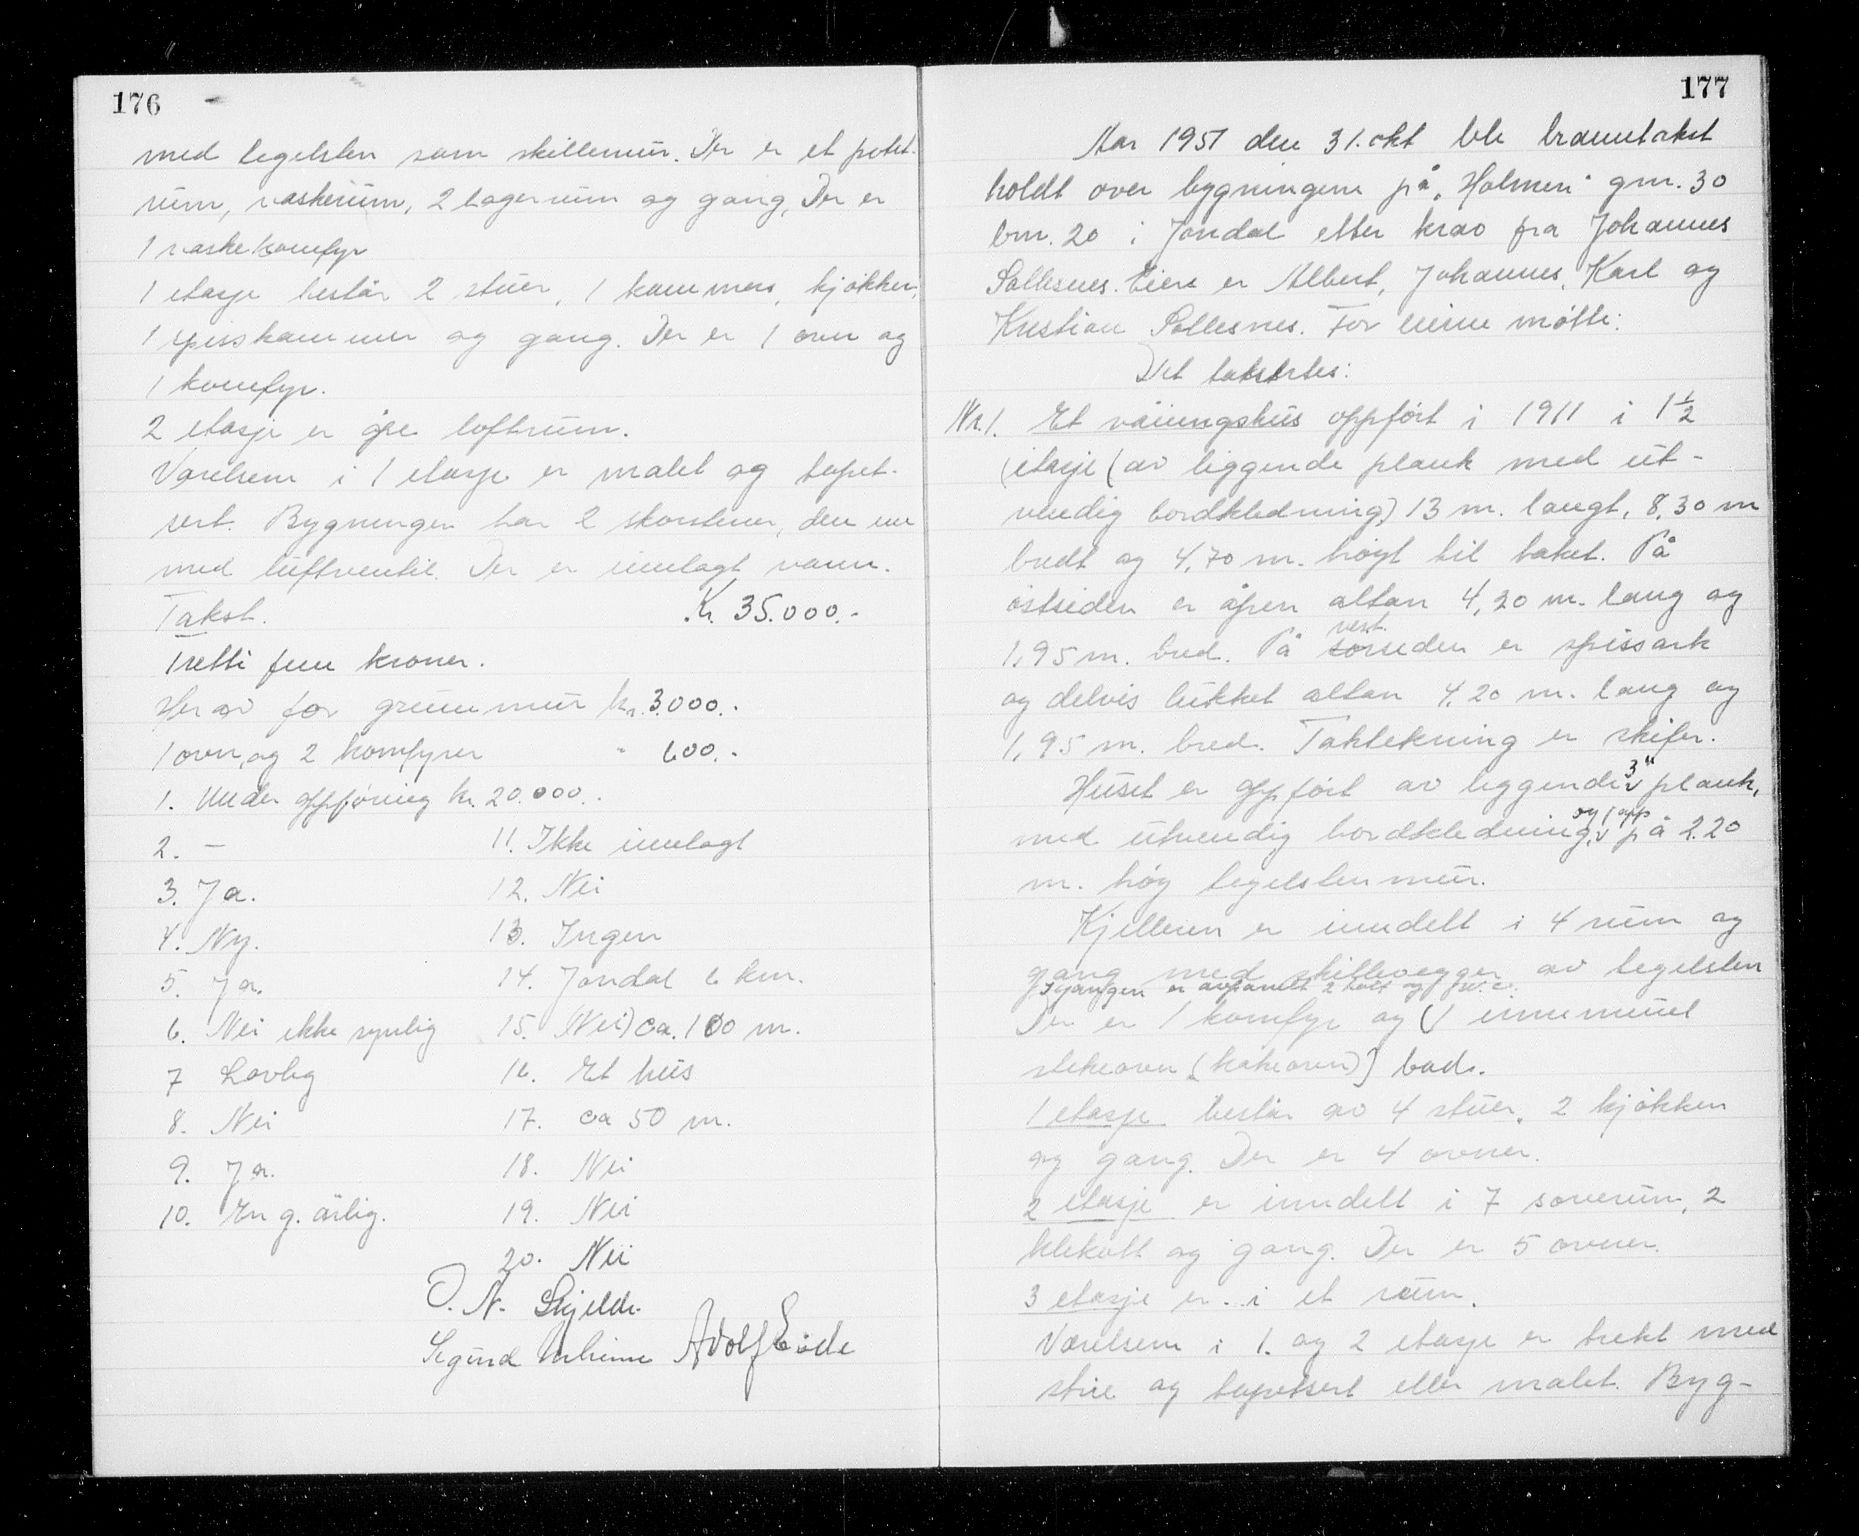 176
med tegelsten som skillemur. Der er et potet-
rum, vaskerum, 2 lagerrum og gang. Der er
1 vaskekomfyr
1 etasje består 2 stuer, 1 kammers, kjøkken,
1 spisskammer og gang. Der er 1 ovn og
1 komfyr.
2 etasje er åpe loftrum.
Værelsene i 1 etasje er malet og tapet-
sert. Bygningen har 2 skorstener, den ene
med luftventil. Der er innlagt vann.
Takst. Kr. 35.000.-
Tretti fem kroner.
Herav for grunnmur kr. 3.000.-
1 ovn og 2 komfyrer " 600.-
1. Under oppføring kr. 20.000.-
2. -
3. Ja.
4. Ny.
5. Ja.
6. Nei ikke synlig
7 Lovlig
8. Nei
9. Ja.
10. En g. årlig.
11. Ikke innlagt
12. Nei
13. Ingen
14. Jondal 6 km.
15. (Nei) ca. 100 m.
16. Et hus
17. ca 50 m.
18. Nei
19. Nei
20. Nei
O. N. Skjelde.
Sigurd Adolf Eide
177
Aar 1951 den 31. okt ble branntakst
holdt over bygningene på "Holmen" gnr. 30
bnr. 20 i Jondal etter krav fra Johannes
Sollesnes. Eiere er Albert, Johannes, Karl og
Kristian Sollesnes. For eierne møtte:
Det takstertes:
Nr. 1. Et våningshus oppført i 1911 i 1 1/2
etasje (av liggende plank med ut-
vendig bordkledning) 13 m. langt, 8,30 m
bredt og 4,70 m. høgt til taket. På
østsiden er åpen altan 4,20 m. lang og
1,95 m. bred. På sørsiden vest. er spissark
og delvis lukket altan 4,20 m. lang og
1,95 m. bred. Taktekning er skifer.
Huset er oppført av liggende 3" plank,
med utvendig bordkledning, og opp på 2.20
m. høg tegelstenmur.
Kjelleren er inndelt i 4 rum og
gang med skillevegger av tegelsten
I gangen er avpanelt 2 og 1 w.c.
Der er 1 komfyr og (1 innemuret
stekeovn [kokeovn)] bad.
1 etasje består av 4 stuer, 2 kjøkken
og gang. Der er 4 ovner.
2 etasje er inndelt i 7 soverum, 2
klekott og gang. Der er 5 ovner.
3 etasje er i et rum.
Værelsene i 1. og 2 etasje er trekt med
strie og tapetsert eller malet. Byg-